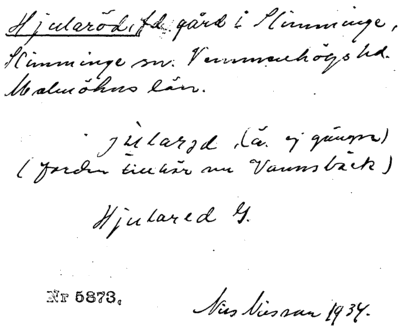 Hjularöd, f.d. gård i Slimminge,
Slimminge sn. Vemmenhögs hd.
Malmöhus län.
julared, (ä. ej gängse)
(jorden tillhör nu Vannsbäck)
Hjulared G.
Nr 5873. Nils Nilsson 1934.